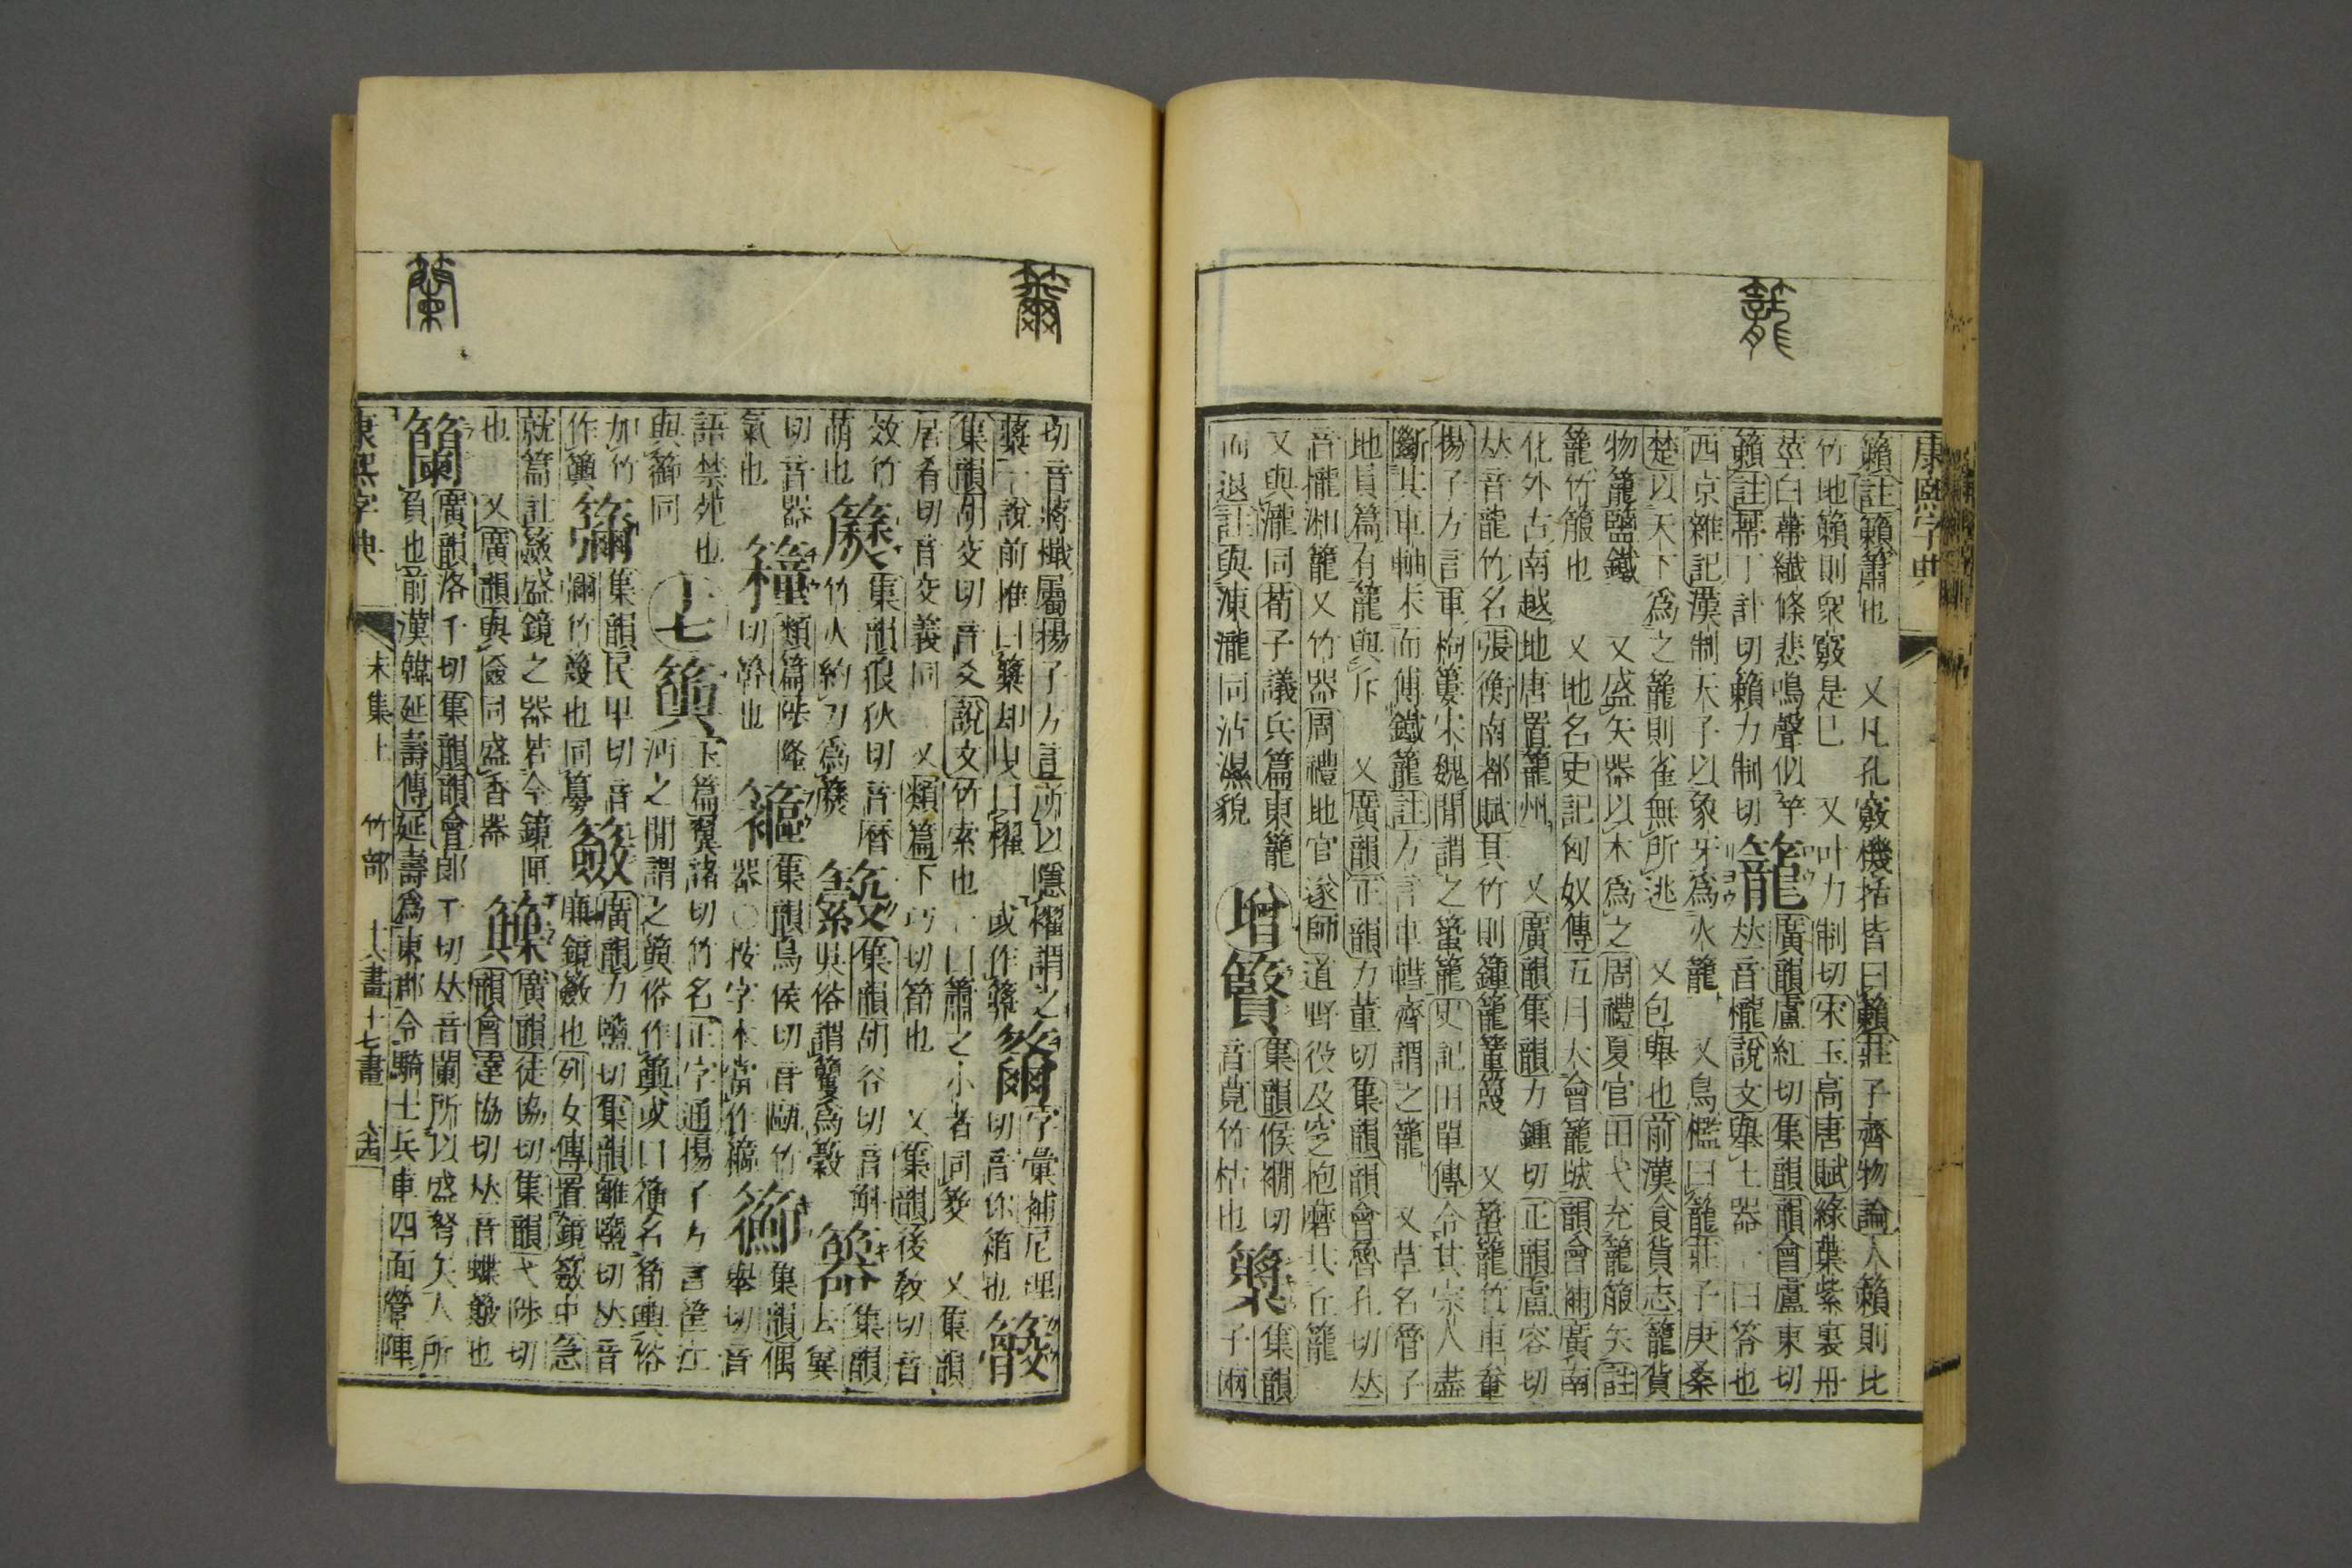 康熙字典
籟註籟簫也　又凡孔竅機括皆曰籟莊子齊物論人籟則比
竹地籟則衆竅是巳　又叶力制切宋玉高唐賦綠葉紫裏丹
莖白蔕纖條悲鳴聲似竽
籟註蔕丁計切籟力制切
籠
廣韻盧紅切集韻韻會盧東切
𠀤音櫳說文舉土器一曰笭也
西京雜記漢制天子以象牙爲火籠　又鳥檻曰籠莊子庚桑
楚以天下爲之籠則雀無所逃　又包舉也前漢食貨志籠貨
物籠鹽鐵　又盛矢器以木爲之周禮夏官田弋充籠箙矢註
籠竹箙也　又地名史記匈奴傳五月大會籠城韻會補廣南
化外古南越地唐置籠州　又廣韻集韻力鍾切正韻盧容切
𠀤音龍竹名張衡南都賦其竹則鍾籠䈽篾　又䗬籠竹車軬
揚子方言車枸簍宋魏閒謂之䗬籠史記田單傳令其宗人盡
斷其車軸末而傅鐵籠註方言車轊齊謂之籠　又草名管子
地員篇有籠與斥　又廣韻正韻力董切集韻韻會魯孔切𠀤
音㰍湘籠又竹器周禮地官遂師道野役及窆抱磨共丘籠
又與瀧同荀子議兵篇東籠
而退註與凍瀧同沾濕貌
增
集韻𠋫襉切
音莧竹枯也
集韻
子兩
切音蔣檥屬揚子方言所以隱櫂謂之
籋
字彙補尼理
切音你箱也
集韻胡交切音爻說文竹索也一曰簫之小者同筊　又集韻
居肴切音交義同　又類篇下巧切筘也　又集韻後教切音
效竹
萌也
集韻狼狄切音曆
竹火約刀爲
集韻胡谷切音斛
吳俗謂籆爲縠
集韻
去冀
切音器
氣也
類篇陟隆
切幹也
集韻烏侯切音甌竹
器〇按字本當作
籞
集韻偶
舉切音
語禁苑也
與篽同
十七
玉篇翼諸切竹名正字通揚子方言筐江
沔之閒謂之籅俗作𥷓或曰籅名筩輿俗
加竹
作籅
集韻民𤰞切音
瀰竹篾也同篡
籢
廣韻力鹽切集韻離鹽切𠀤音
廉鏡籢也列女傳置鏡籢中急
就篇註籢盛鏡之器若今鏡匣
也　又廣韻與匳同盛香器
廣韻徒協切集韻弋涉切
韻會達協切𠀤音蝶籢也
籣
廣韻洛干切集韻韻會郎干切𠀤音闌所以盛弩矢人所
負也前漢韓延壽傳延壽爲東郡令騎士兵車四面營陣
康熙字典　未集上　竹部　十六畫十七畫